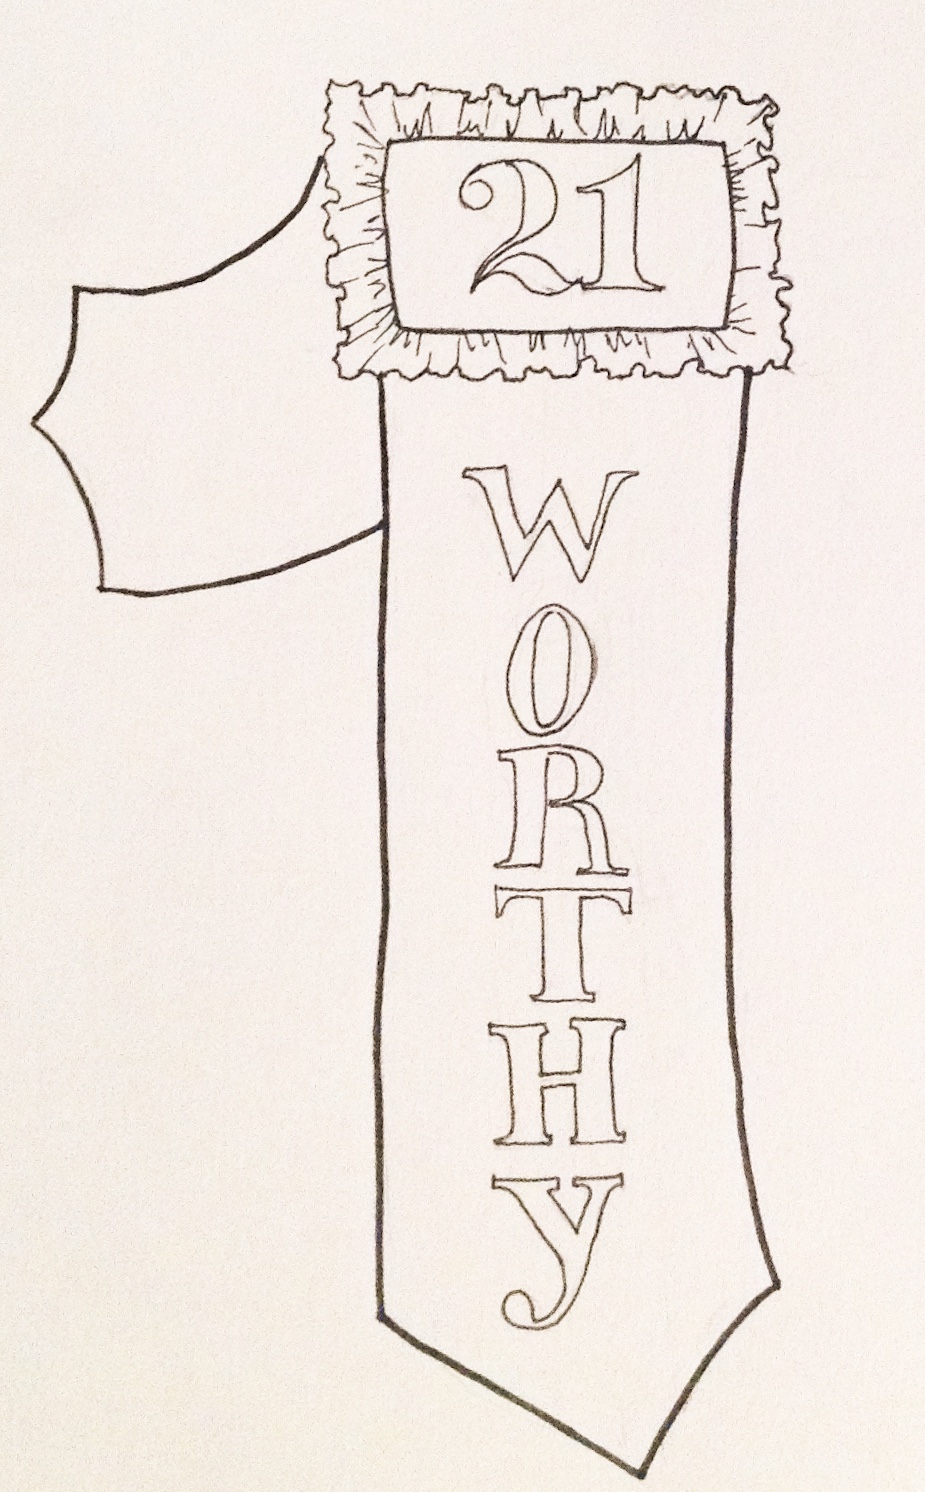 21
WORTHY